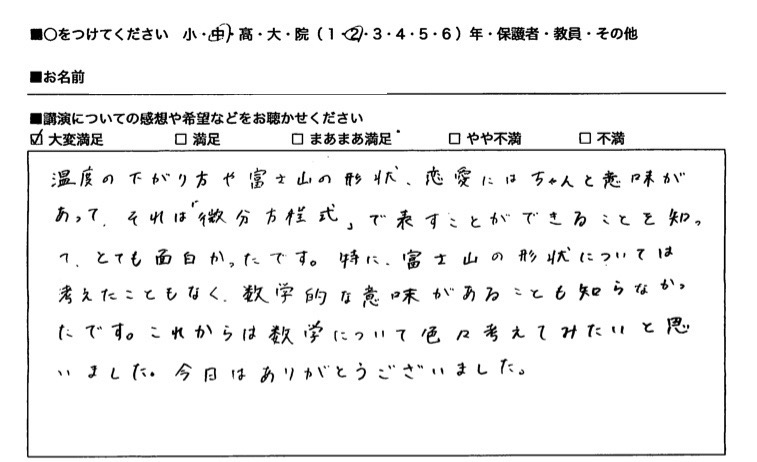 ■○をつけてください 小・中・高・大・院(1・2・3・4・5・6)年・保護者・教員・その他
■お名前
■講演についての感想や希望などをお聴かせください
☑ 大変満足 □ 満足 □ まあまあ満足 □ やや不満 □ 不満
温度の下がり方や富士山の形状、恋愛にはちゃんと意味が
あって、それは「微分方程式」で表すことができることを知っ
て、とても面白かったです。特に、富士山の形状については
考えたこともなく、数学的な意味があることも知らなかっ
たです。これからは数学について色々考えてみたいと思
いました。今日はありがとうございました。